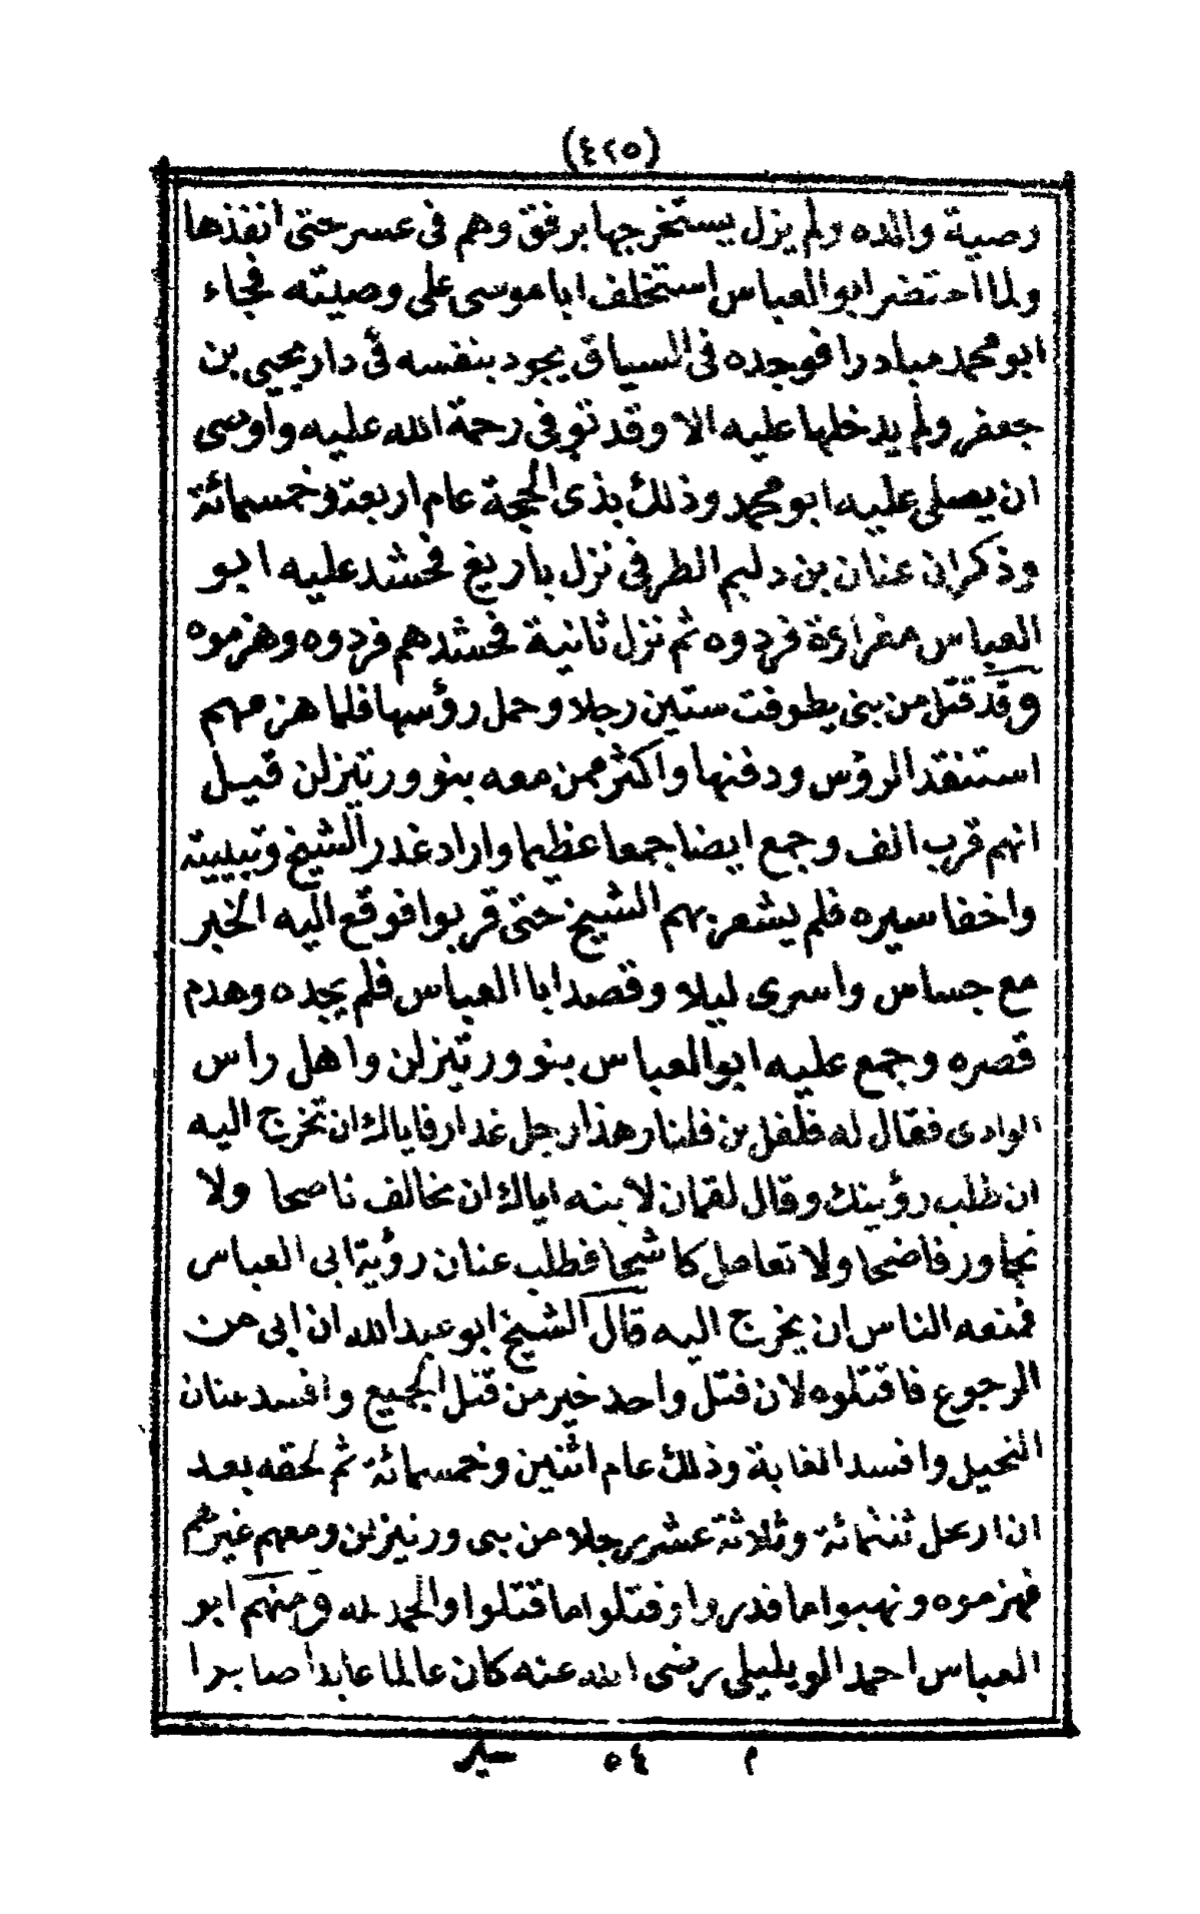 (٤٢٥)
وصية والده ولم يزل يستخرجها برفق وهم فى عسر حتى انفذها
ولما احتضر ابو العباس استخلف ابا موسى على وصيته فجاء
ابو محمد مبادرا فوجده فى السياق يجود بنفسه فى دار يحيى بن
جعفر ولم يدخلها عليه الا وقد توفى رحمة الله عليه واوسى
ان يصلى عليه ابو محمد وذلك بذى الحجة عام اربعة وخمسمائة
وذكر ان عنان بن دليم الطرفى نزل باريغ فحشد عليه ابو
العباس مغراوة فردوه ثم نزل ثانية فحشدهم فردوه وهزموه
وقد قتل من بنى يطوفت ستين رجلا وحمل رؤسها فلما هزمهم
استنقد الرؤس ودفنها واكثر ممن معه بنو ورتيزلن قيل
انهم قرب الف وجمع ايضا جمعا عظيما واراد غدر الشيخ وتبييته
واخفا سيره فلم يشعر بهم الشيخ حتى قربوا فوقع اليه الخبر
مع جساس واسرى ليلا وقصد ابا العباس فلم يجده وهدم
قصره وجمع عليه ابو العباس بنو ورتيزلن واهل راس
الوادى فقال له فلفل بن فلنار هذا رجل غدار فاياك ان تخرج اليه
ان طلب رؤيتك وقال لقمان لابنه اياك ان تخالف ناصحا ولا
تجاور فاضحا ولا تعامل كاشحا فطلب عنان رؤية ابى العباس
فمنعه الناس ان يخرج اليه قال الشيخ ابو عبد الله ان ابى من
الرجوع فاقتلوه لان قتل واحد خير من قتل الجميع وافسد عنان
النخيل وافسد الغابة وذلك عام اثنين وخمسمائة ثم لحقه بعد
ان ارتحل ثلثمائة وثلاثة عشر رجلا من بنى ورتيزلن ومعهم غيرهم
فهزموه ونهبوا ما قدروا وقتلوا ما قتلوا والحمد لله ومنهم ابو
العباس احمد الويليلى رضى الله عنه كان عالما عابدا صابرا
م ٥٤ سير